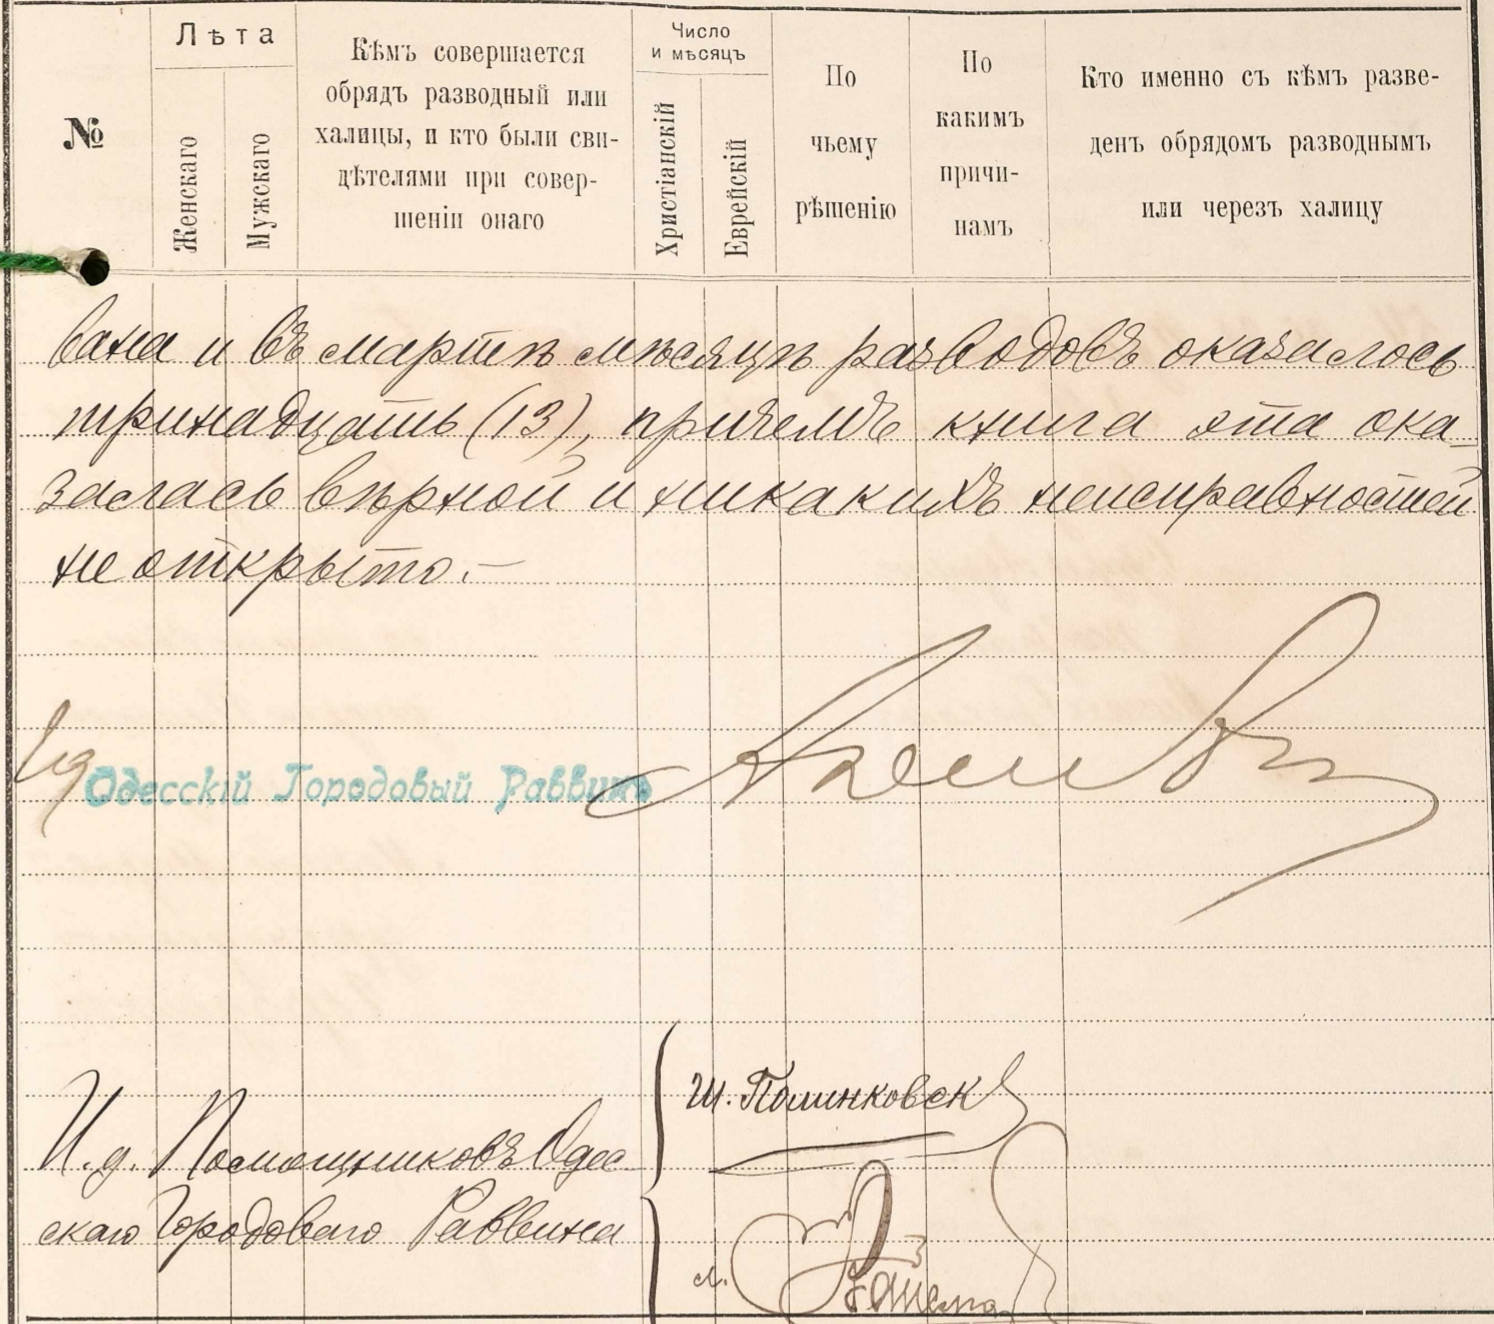 №
Лѣта
Женскаго
Мужскаго
Кѣмъ совершается
обрядъ разводный или
халицы, и кто были сви-
дѣтелями при совер-
шеніи онаго
Число
и мѣсяцъ
Христіанскій
Еврейскій
По
чьему
рѣшенію
По
какимъ
причи-
намъ
Кто именно съ кѣмъ разве-
денъ обрядомъ разводнымъ
или черезъ халицу
вана и въ мартѣ мѣсяцѣ разводовъ оказалось
тринадцать (13), причемъ книга эта ока-
залась вѣрной и никакихъ неисправностей
не открыто.—
Ид Одесскій Городовый Раввинъ
И.д. Помощниковъ Одес
скаго Городоваго Раввина
Ш. Полинковск